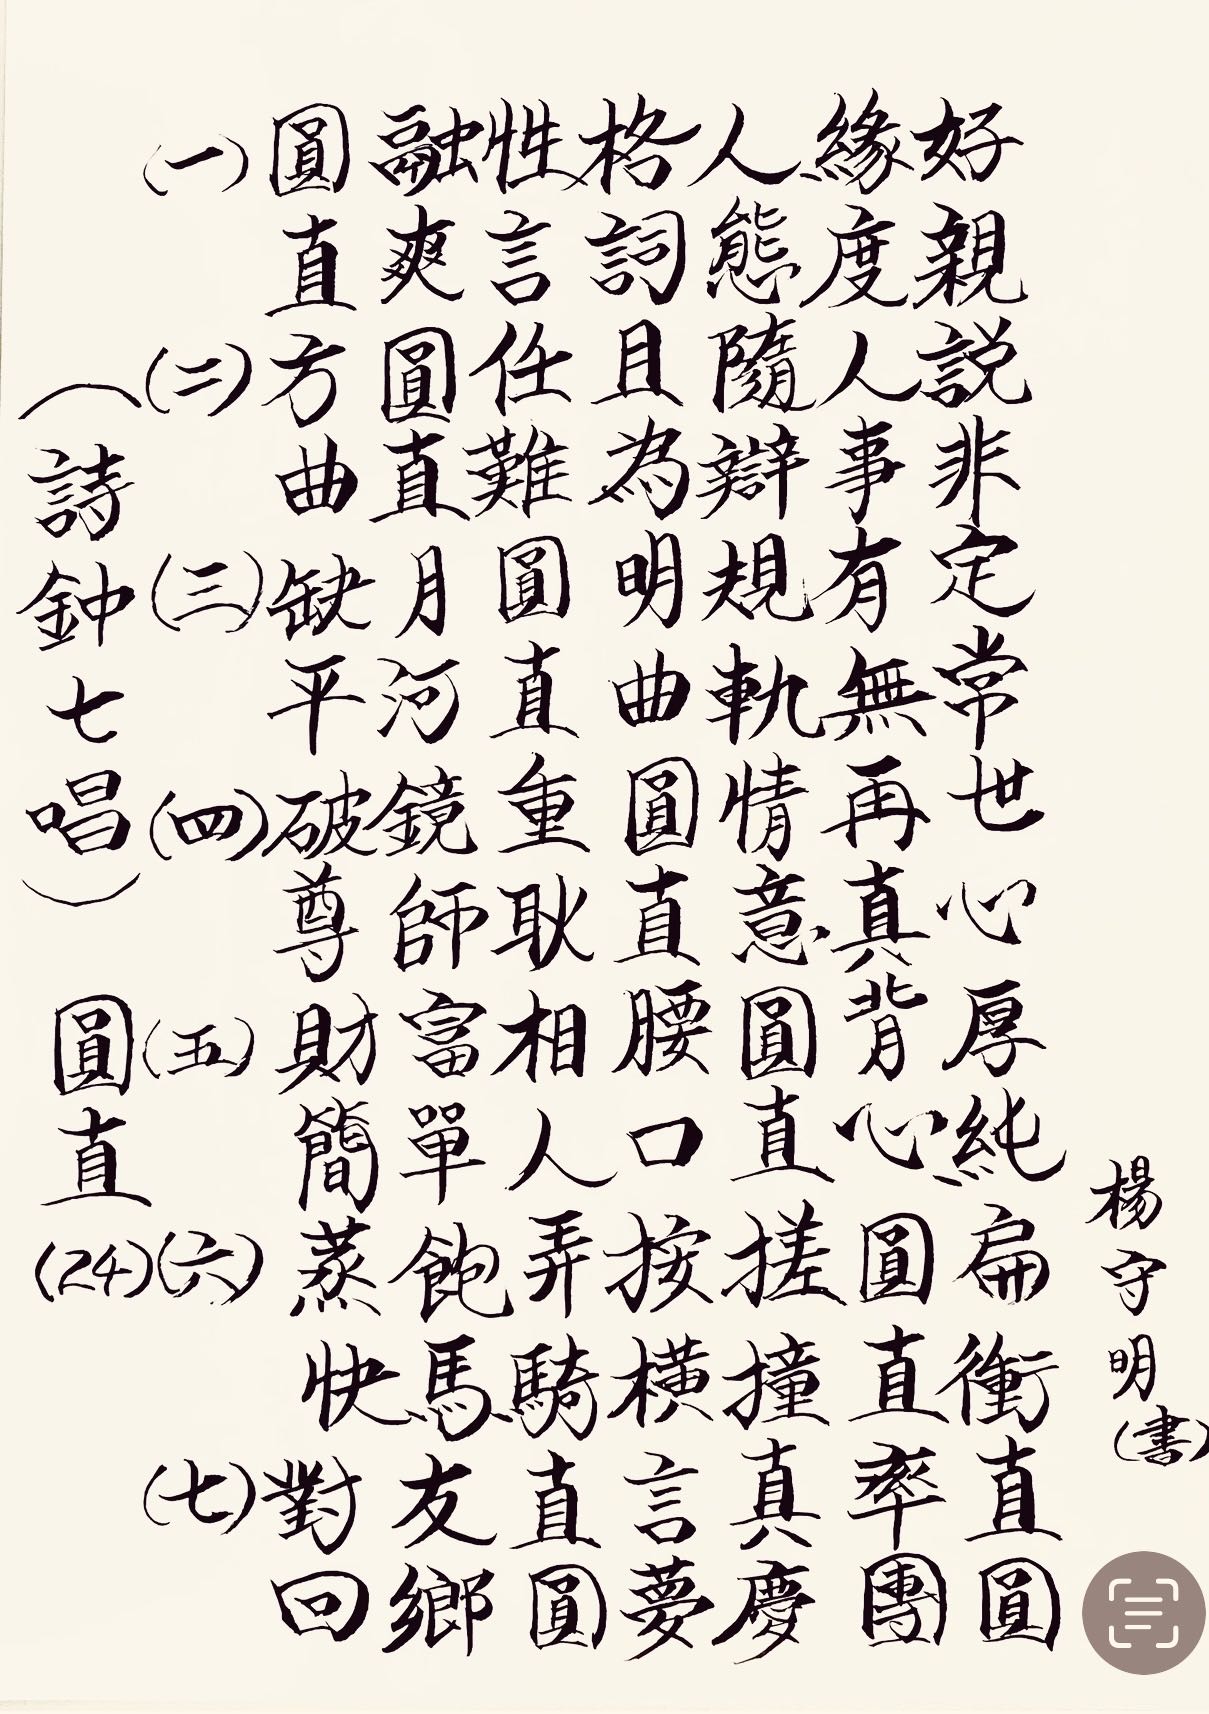 （詩鐘七唱） 圓直(24)
(一) 圓融性格人緣好
直爽言詞態度親
(二) 方圓任且隨人説
曲直難為辯事非
(三) 缺月圓明規有定
平河直曲軌無常
(四) 破鏡重圓情再世
尊師耿直意真心
(五) 財富相腰圓背厚
簡單人口直心純
(六) 蒸飽弄按搓圓扁
快馬騎橫撞直衝
(七) 對友直言真率直
回鄉圓夢慶團圓
楊守明(書)